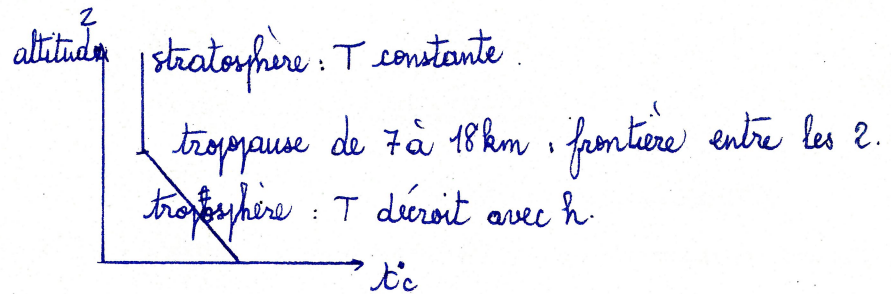 z
altitude
stratosphère : T constante.
tropopause de 7 à 18 km , frontière entre les 2.
troposphère : T décroit avec h.
t°c